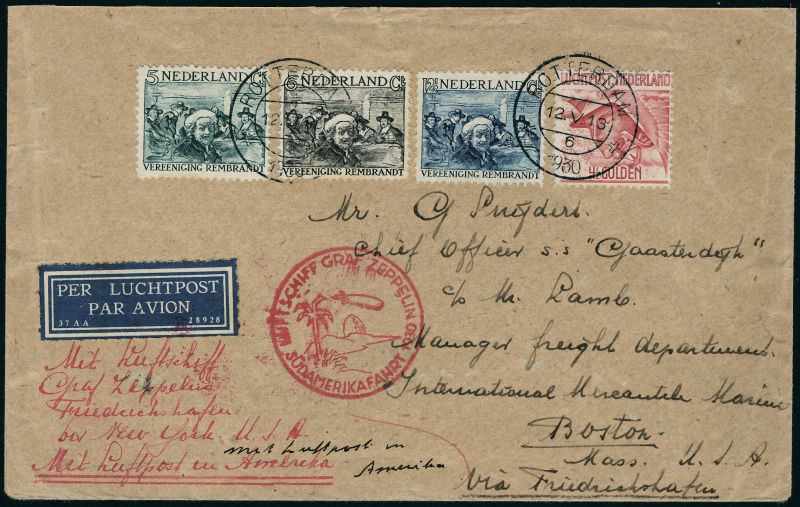 5 NEDERLAND Ct
VEREENIGING REMBRANDT
6 NEDERLAND Ct
VEREENIGING REMBRANDT
12½ NEDERLAND Ct
VEREENIGING REMBRANDT
LUCHTPOST NEDERLAND
GULDEN
ROTTERDAM
12
ROTTERDAM
12.V.16
6
1930
Mr. G Snijders.
Chief Officer s.s "Gaasterdijk"
c/o Mr. Lamb.
Manager freight departement.
International Mercantile Marine
Boston.
Mass. U.S.A.
via Friedrichshafen.
PER LUCHTPOST
PAR AVION
37AA 28928
LUFTSCHIFF GRAF ZEPPELIN
SÜDAMERIKAFAHRT 1930
Mit Luftschiff
Graf Zeppelin
Friedrichshafen
New York U.S.A.
Mit Luftpost in Amerika
mit Luftpost in
Amerika